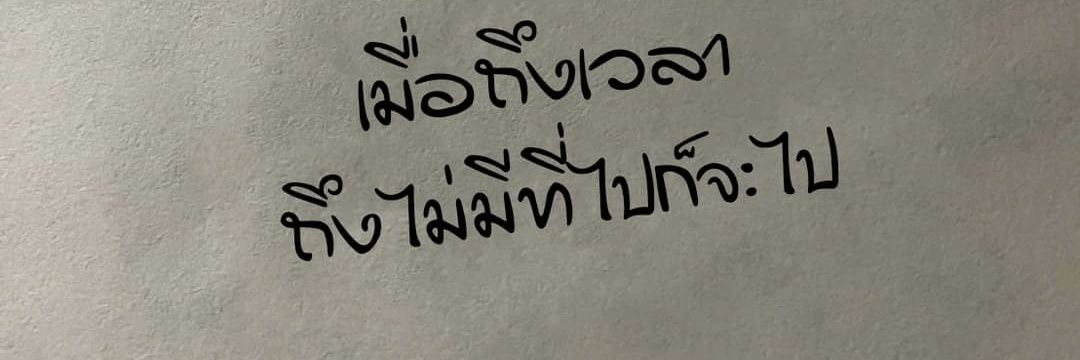 เมื่อถึงเวลา
ถึงไม่มีที่ไปก็จะไป